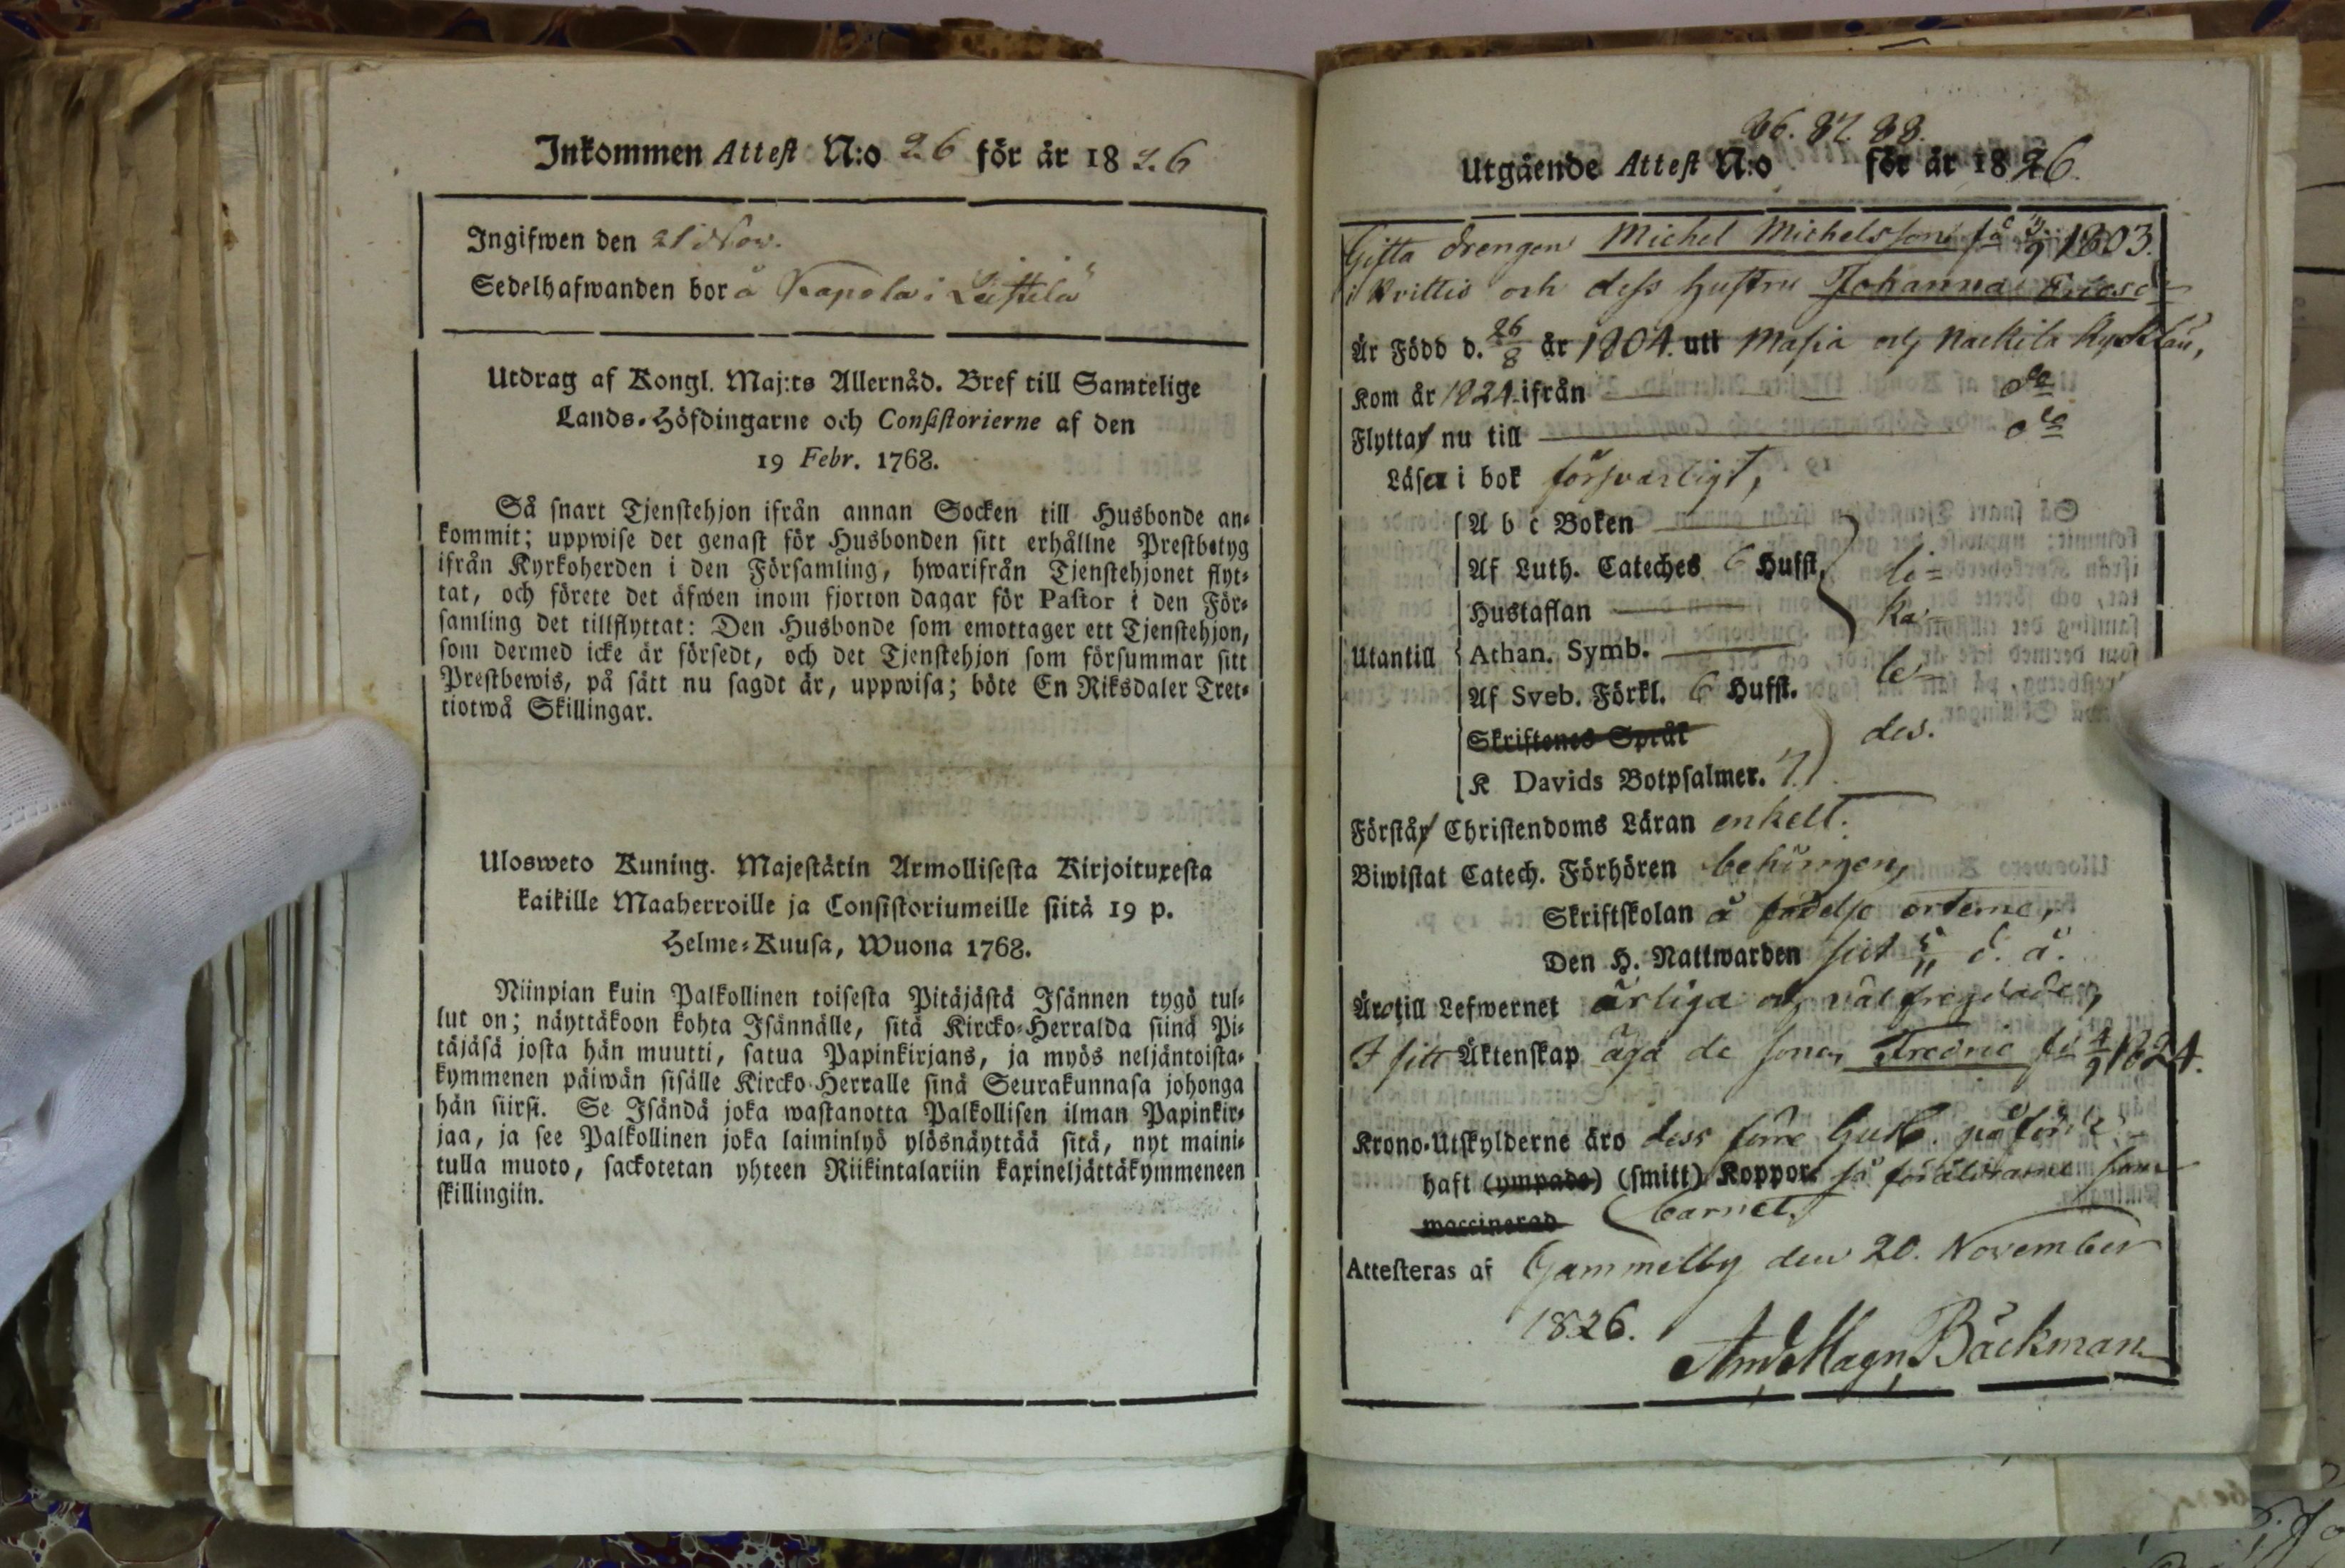 Inkommen Attest N:o 26 för år 1826
Ingifwen den 21 Nov.
Sedelhafwanden bor å i
Utdrag af Kongl. Maj:ts Allernåd. Bref till Samtelige
Lands-Höfdingarne och Consistorierne af den
19 Febr. 1768.
Så snart Tjenstehjon ifrån annan Socken till Husbonde an-
kommit; uppwise det genast för Husbonden sitt erhållne Prestbetyg
ifrån Kyrkoherden i den Församling, hwarifrån Tjenstehjonet flyt-
tat, och förete det äfwen inom fjorton dagar för Pastor i den För-
samling det tillflyttat: Den Husbonde som emottager ett Tjenstehjon,
som dermed icke är försedt, och det Tjenstehjon som försummar sitt
Prestbewis, på sätt nu sagdt är, uppwisa; böte En Riksdaler Tret-
tiotwå Skillingar.
Ulosweto Kuning. Majestätin Armollisesta Kirjoituxesta
kaikille Maaherroille ja Consistoriumeille siitä 19 p.
Helme-Kuusa, Wuona 1768.
Niinpian kuin Palkollinen toisesta Pitäjästä Isännen tygö tul-
lut on; näyttäkoon kohta Isännälle, sitä Kircko-Herralda siinä Pi-
täjäsä josta hän muutti, satua Papinkirjans, ja myös neljäntoista-
kymmenen päiwän sisälle Kircko-Herralle sinä Seurakunnasa johonga
hän siirsi. Se Isändä joka wastanotta Palkollisen ilman Papinkir-
jaa, ja see Palkollinen joka laiminlyö ylösnäyttää sitä, nyt maini-
tulla muoto, sackotetan yhteen Riikintalariin kaxineljättäkymmeneen
skillingiin.
86. 87. 88.
Utgående Attest N:o för år 1826.
Gifta drengen Michel Michelsson 1803.
i Kvittis och dess hustru Johanna
Är Född d. 26/8 år 1804. utt Masia och Nackila
Kom år 1824 ifrån do
Flyttar nu till do
Läser i bok försvarligt,
A b c Boken
Af Luth. Cateches 6 Hufst.
Hustaflan
Utantill Athan. Symb.
Af Sveb. Förkl. 6 Hufst.
Skriftenes Språk
K Davids Botpsalmer. 7.
li-
ka-
le-
des.
Förstår Christendoms Läran enkelt.
Biwistat Catech. Förhören behörigen,
Skriftskolan å födelse orterne,
Den H. Nattwarden sist
Äro till Lefwernet ärliga och välfregdade,
I sitt Äktenskap äga de sonen Fredric 1824.
Krono-Utskylderne äro dess förre Husb. påförde
haft (ympade) (smitt) Koppor så föräldrarne som
waccinerad barnet.
Attesteras af Gammelby den 20. November
1826.
And Magn Bäckman